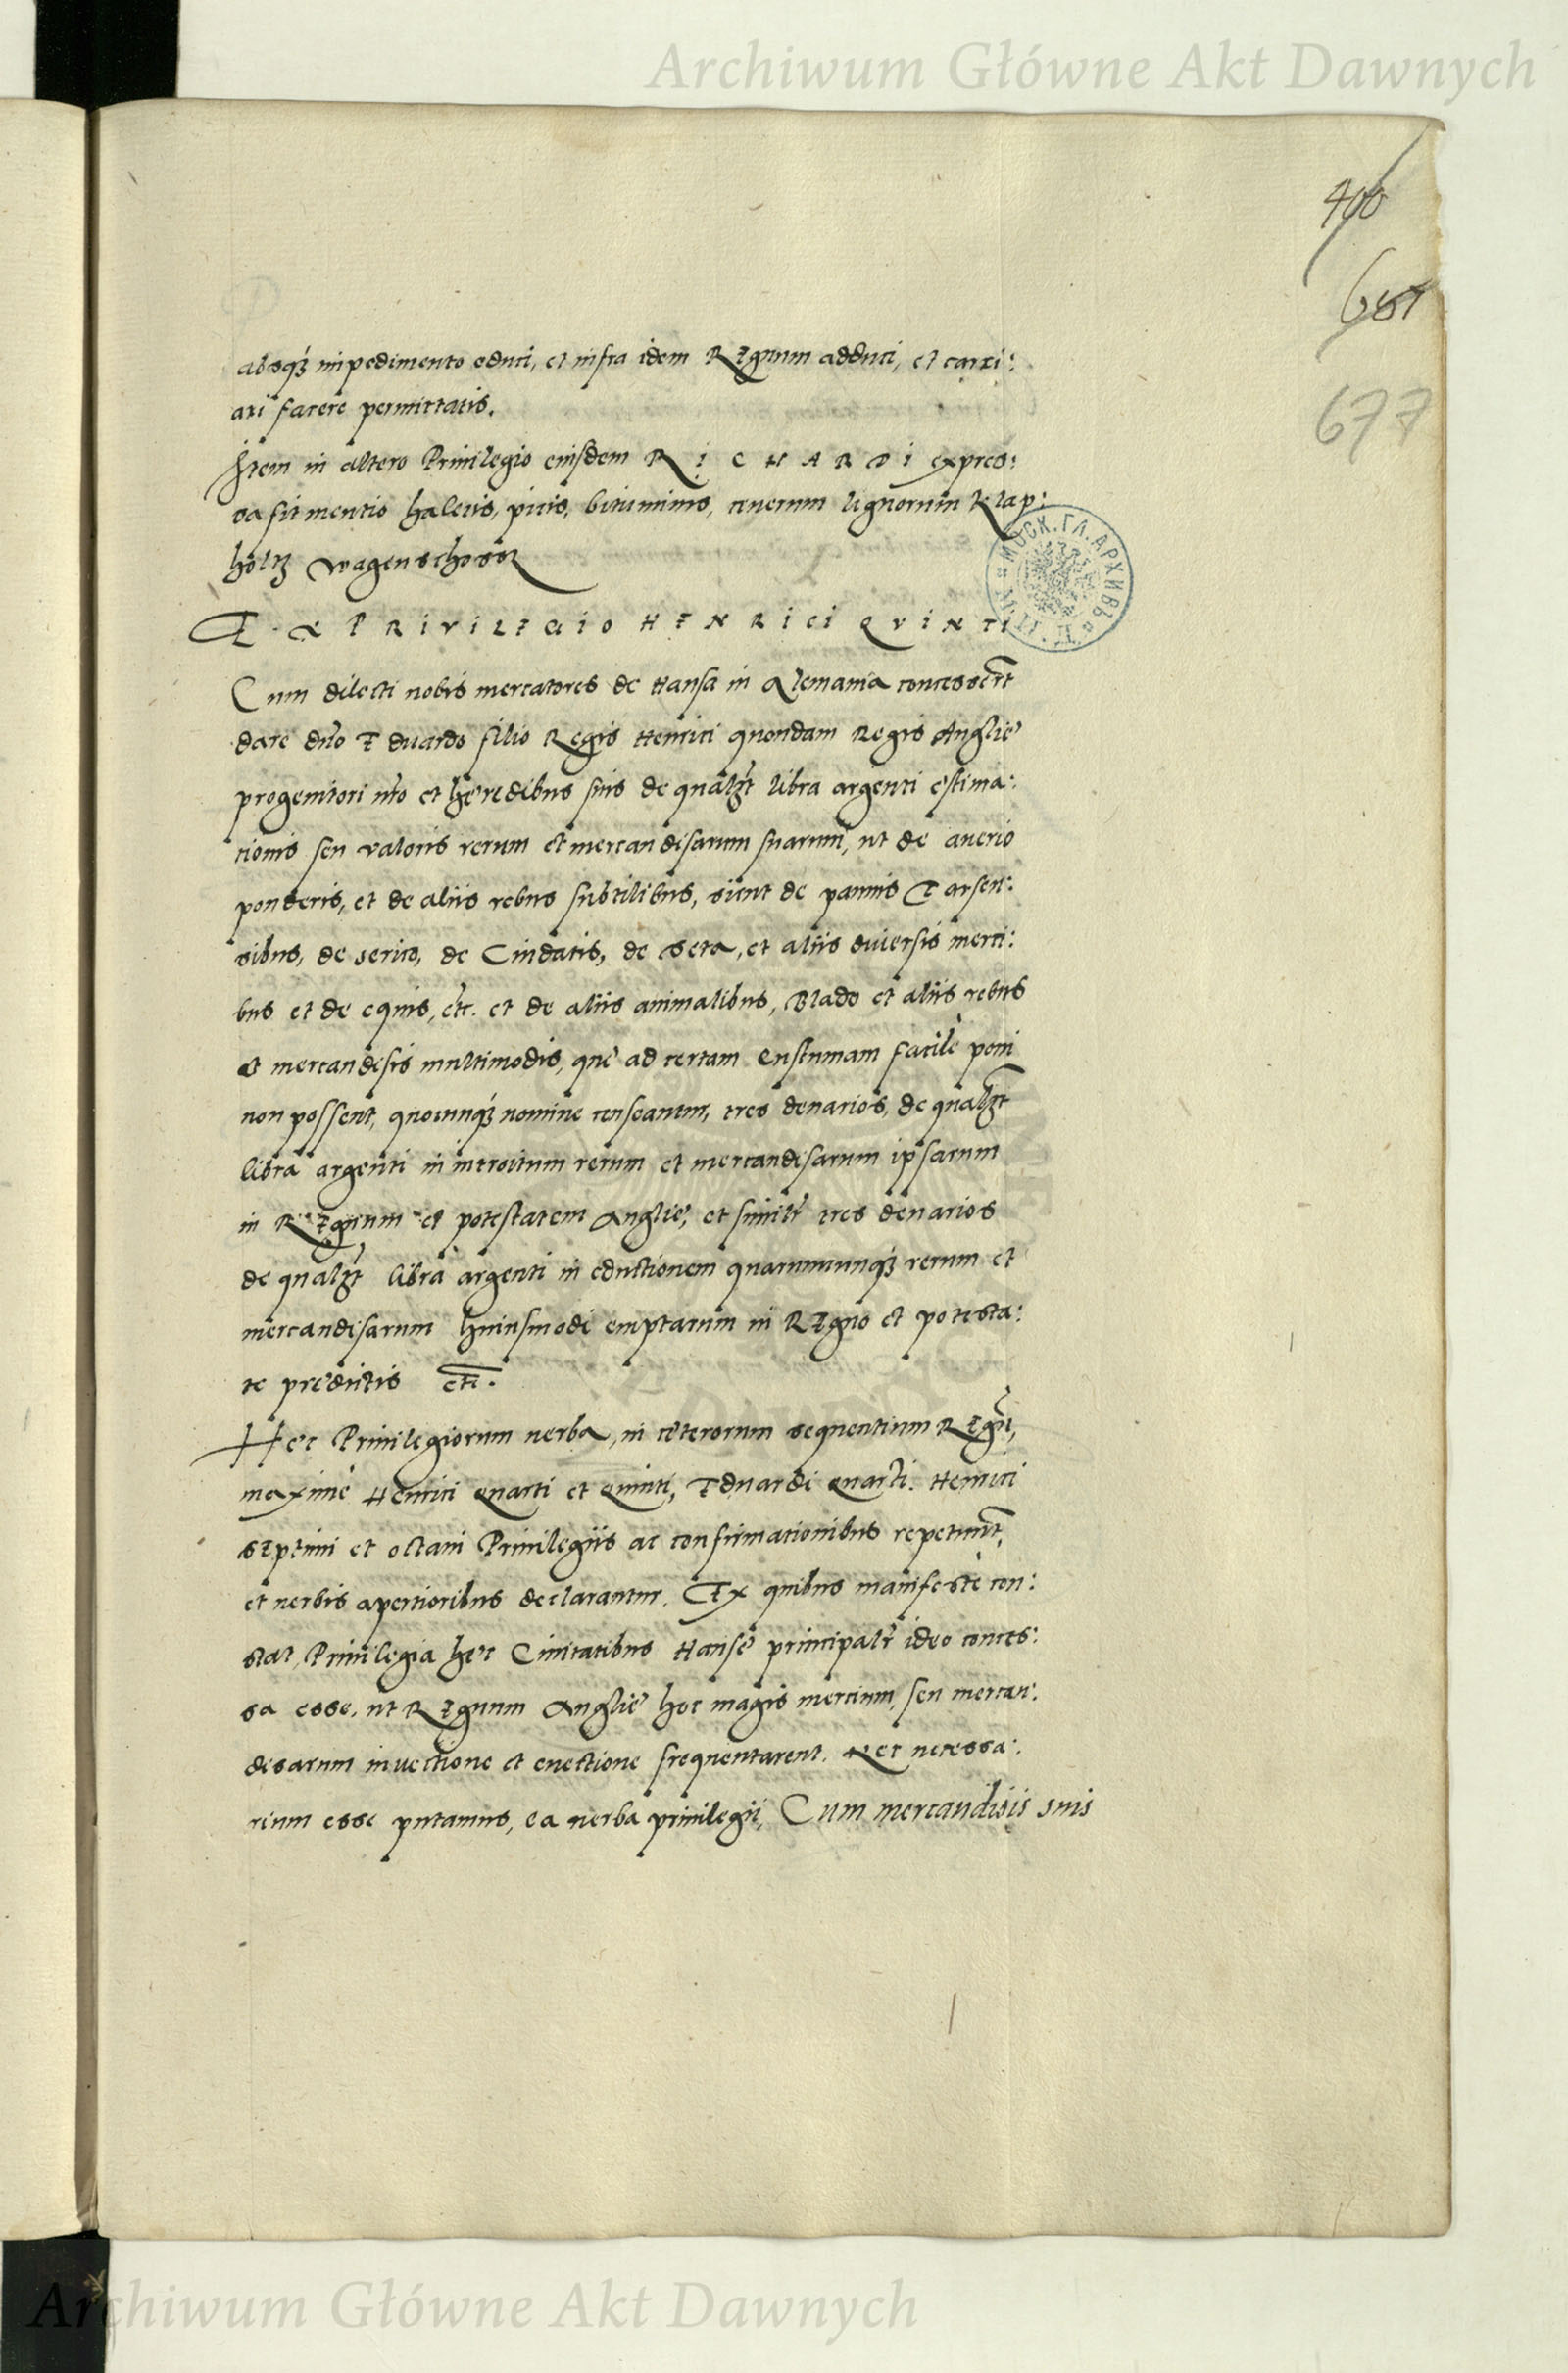 Archiwum Główne Akt Dawnych
400
681
677
absqꝫ impedimento educi, et infra idem REgnum adduci, et carri:
ari facere permittatis.
Item in altero Priuilegio eiusdem RiCHARDi expres:
sa fit mentio halecis, picis, bituminis, cinerum lignorum Klap:
holtz Wagenschoss
EX PRIVILEGIO HENRICI QVINTI
Cum dilecti nobis mercatores de Hansa in Alemania concesserĩt
dare dño Eduardo filio Regis Henrici quondam Regis Anglie
progenitori nr̃o et heredibus suis de qualꝫt libra argenti estima:
tionis seu valoris rerum et mercandisarum suarum, ut de auerio
ponderis, et de aliis rebus subtilibus, sicut de pannis Tarsen:
sibus, de serico, de Cindatis, de seta, et aliis diuersis merci:
bus et de equis, etc. et de aliis animalibus, Blado et aliis rebus
et mercandisis multimodis, que ad certam Custumam facilè poni
non possent, quocunqꝫ nomine censeantur, tres denarios, de qualꝫt
libra argenti in introitum rerum et mercandisarum ipsarum
in REgnum et potestatem Anglie, et similr̃ tres denarios
de qualꝫt libra argenti in eductionem quarumcunqꝫ rerum et
mercandisarum huiusmodi emptarum in REgno et potesta:
te predictis etc.
Hec Priuilegiorum uerba, in ceterorum sequentium REgũ,
maximè Henrici Quarti et Quinti, Eduardi Quarti. Henrici
sEptimi et octaui Priuilegiis ac confirmationibus repetunt̃,
et uerbis apertioribus declarantur. Ex quibus manifestè con:
stat, Priuilegia hec Ciuitatibus Hanse principalr̃ ideo conces:
sa esse, ut REgnum Anglie hoc magis mercium, seu mercan:
disarum inuectione et euectione frequentarent. Nec necessa:
rium esse putamus, ea uerba priuilegii, Cum mercandisis suis
МОСК. ГЛ. АРХИВЪ
Archiwum Główne Akt Dawnych